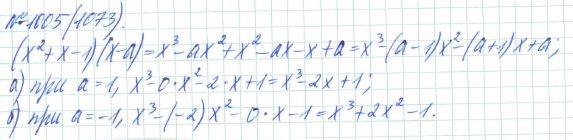 № 1005 (1073).
(x² + x - 1)(x - a) = x³ - ax² + x² - ax - x + a = x³ - (a - 1)x² - (a + 1)x + a;
а) при a = 1, x³ - 0·x² - 2·x + 1 = x³ - 2x + 1;
б) при a = -1, x³ - (-2)x² - 0·x - 1 = x³ + 2x² - 1.